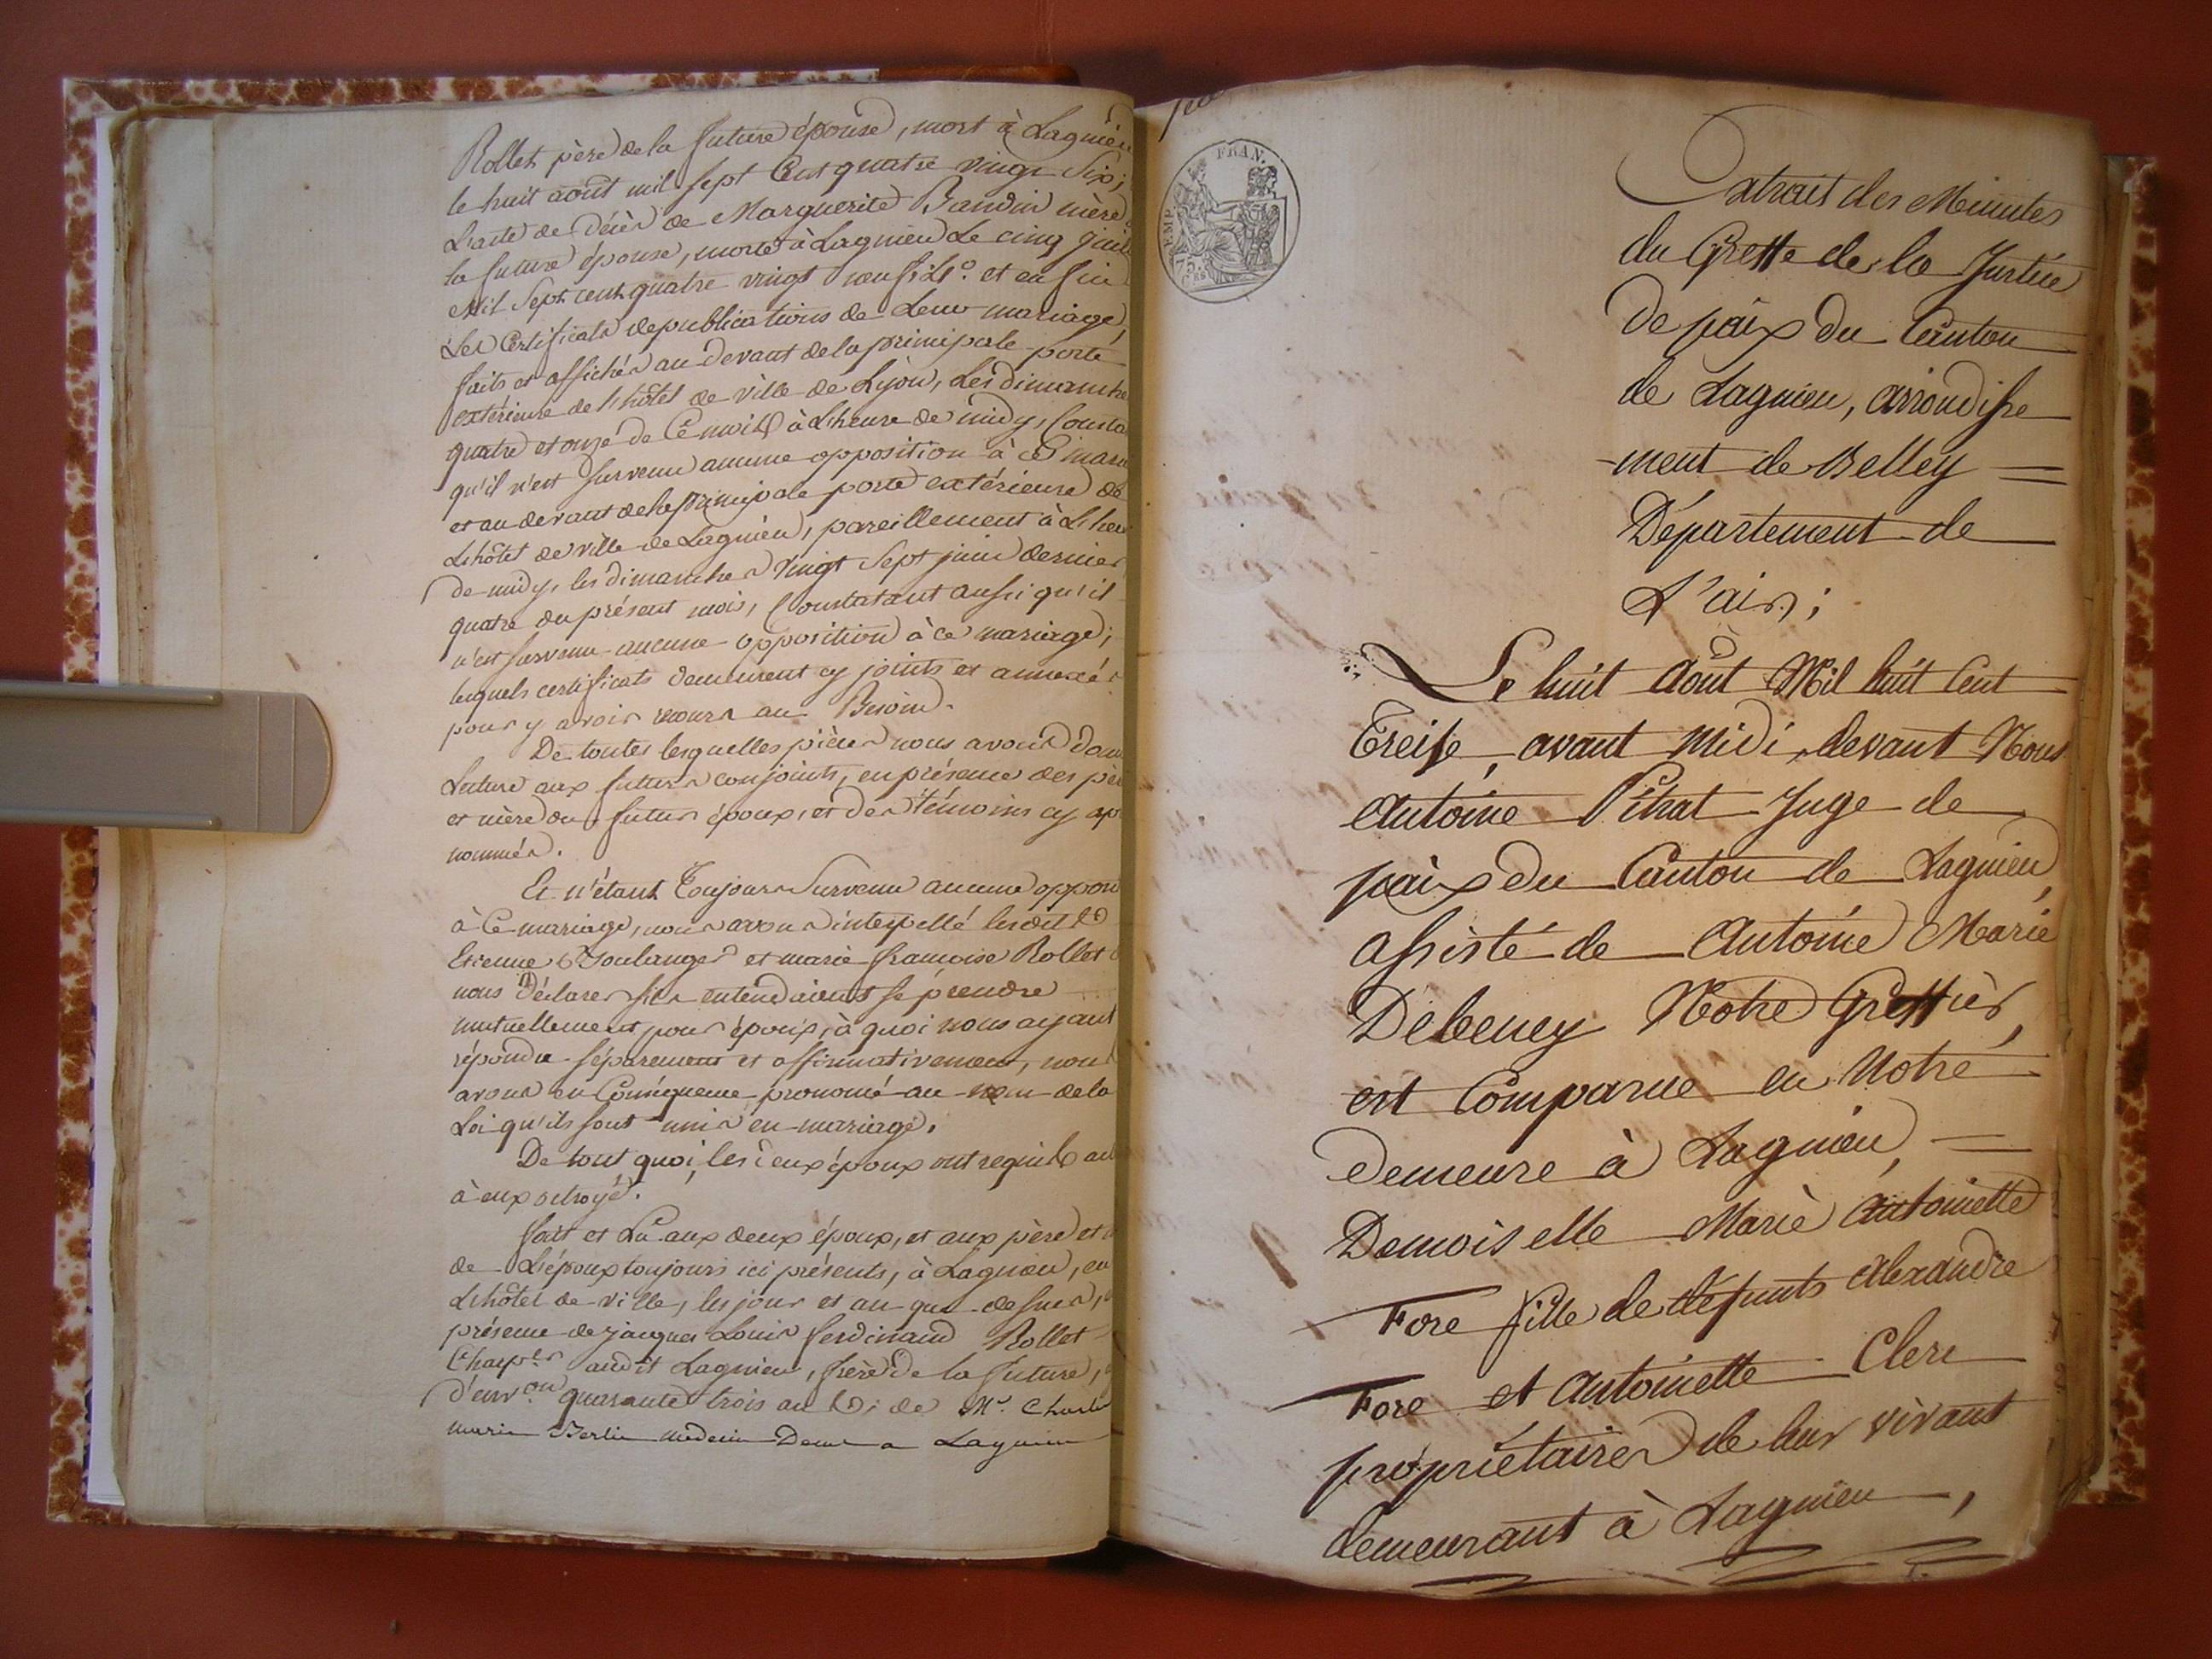 Rollet père de la future épouse, mort à Lagnieu
le huit août mil sept Cent quatre vingt Six;
L'acte de décès de Marguerite Baudin mère
la future épouse, morte à Lagnieu Le cinq
Mil Sept cent quatre vingt neuf; et en fin
Les Certificats de publications de Leur mariage,
faits et affichés au devant de la principale porte
extérieure de l'hôtel de ville de Lyon, Les dimanche
quatre et onze de Ce mois à L'heure de midy,
qu'il n'est survenu aucune opposition à ce
et au devant de la Principale porte extérieure de
L'hôtel de ville de Lagnieu, pareillement à L'heu
de midy, les dimanches vingt Sept juin dernier
quatre du présent mois, Constatant aussi qu'il
n'est survenu aucune opposition à ce mariage;
lesquels certificats demeurent cy joints et annexés
pour y avoir recours au Besoin.
De toutes lesquelles pièces nous avons
Lecture aux futurs conjoints, en présence des pè
et mère du futur époux, et des témoins cy ap
nommés.
Et n'étant Toujours Survenu aucune oppon
à Ce mariage, nous avons interpellé lesdits
Etienne Boulanger et marie françoise Rollet
nous déclarer s'ils entendaient se prendre
mutuellement pour époux, à quoi nous ayant
répondu séparement et affirmativement, nous
avons en Conséquence prononcé au nom de la
Loi qu'ils sont unis en mariage.
De tout quoi, les deux époux ont requis
à eux octroyé.
fait et Lu aux deux époux, et aux père et
de L'époux toujours ici présents, à Lagnieu, en
L'hôtel de ville, les jour et an que dessus,
présence de jacques Louis ferdinand Rollet
audit Lagnieu, frère de la future,
d'envon quarante trois ans; de Mr. Charles
marie médecin Demt a Lagnieu
TIMP. FRAN.
Extrait des Minutes
du Greffe de la Justice
de paix du Canton
de Lagnieu, arrondisse
-ment de Belley =
Département de
L'ain;
Le huit août Mil huit Cent
Treise, avant Midi, devant Nous
Antoine Pihat Juge de
paix du Canton de Lagnieu,
assisté de Antoine Marie
Debeney Notre Greffier,
est Comparue en Notre
demeure à Lagnieu, =
Demoiselle Marie Antoinette
Fore fille de défunts Alexandre
Fore et Antoinette Clerc
propriétaires de leur vivant
demeurant à Lagnieu,